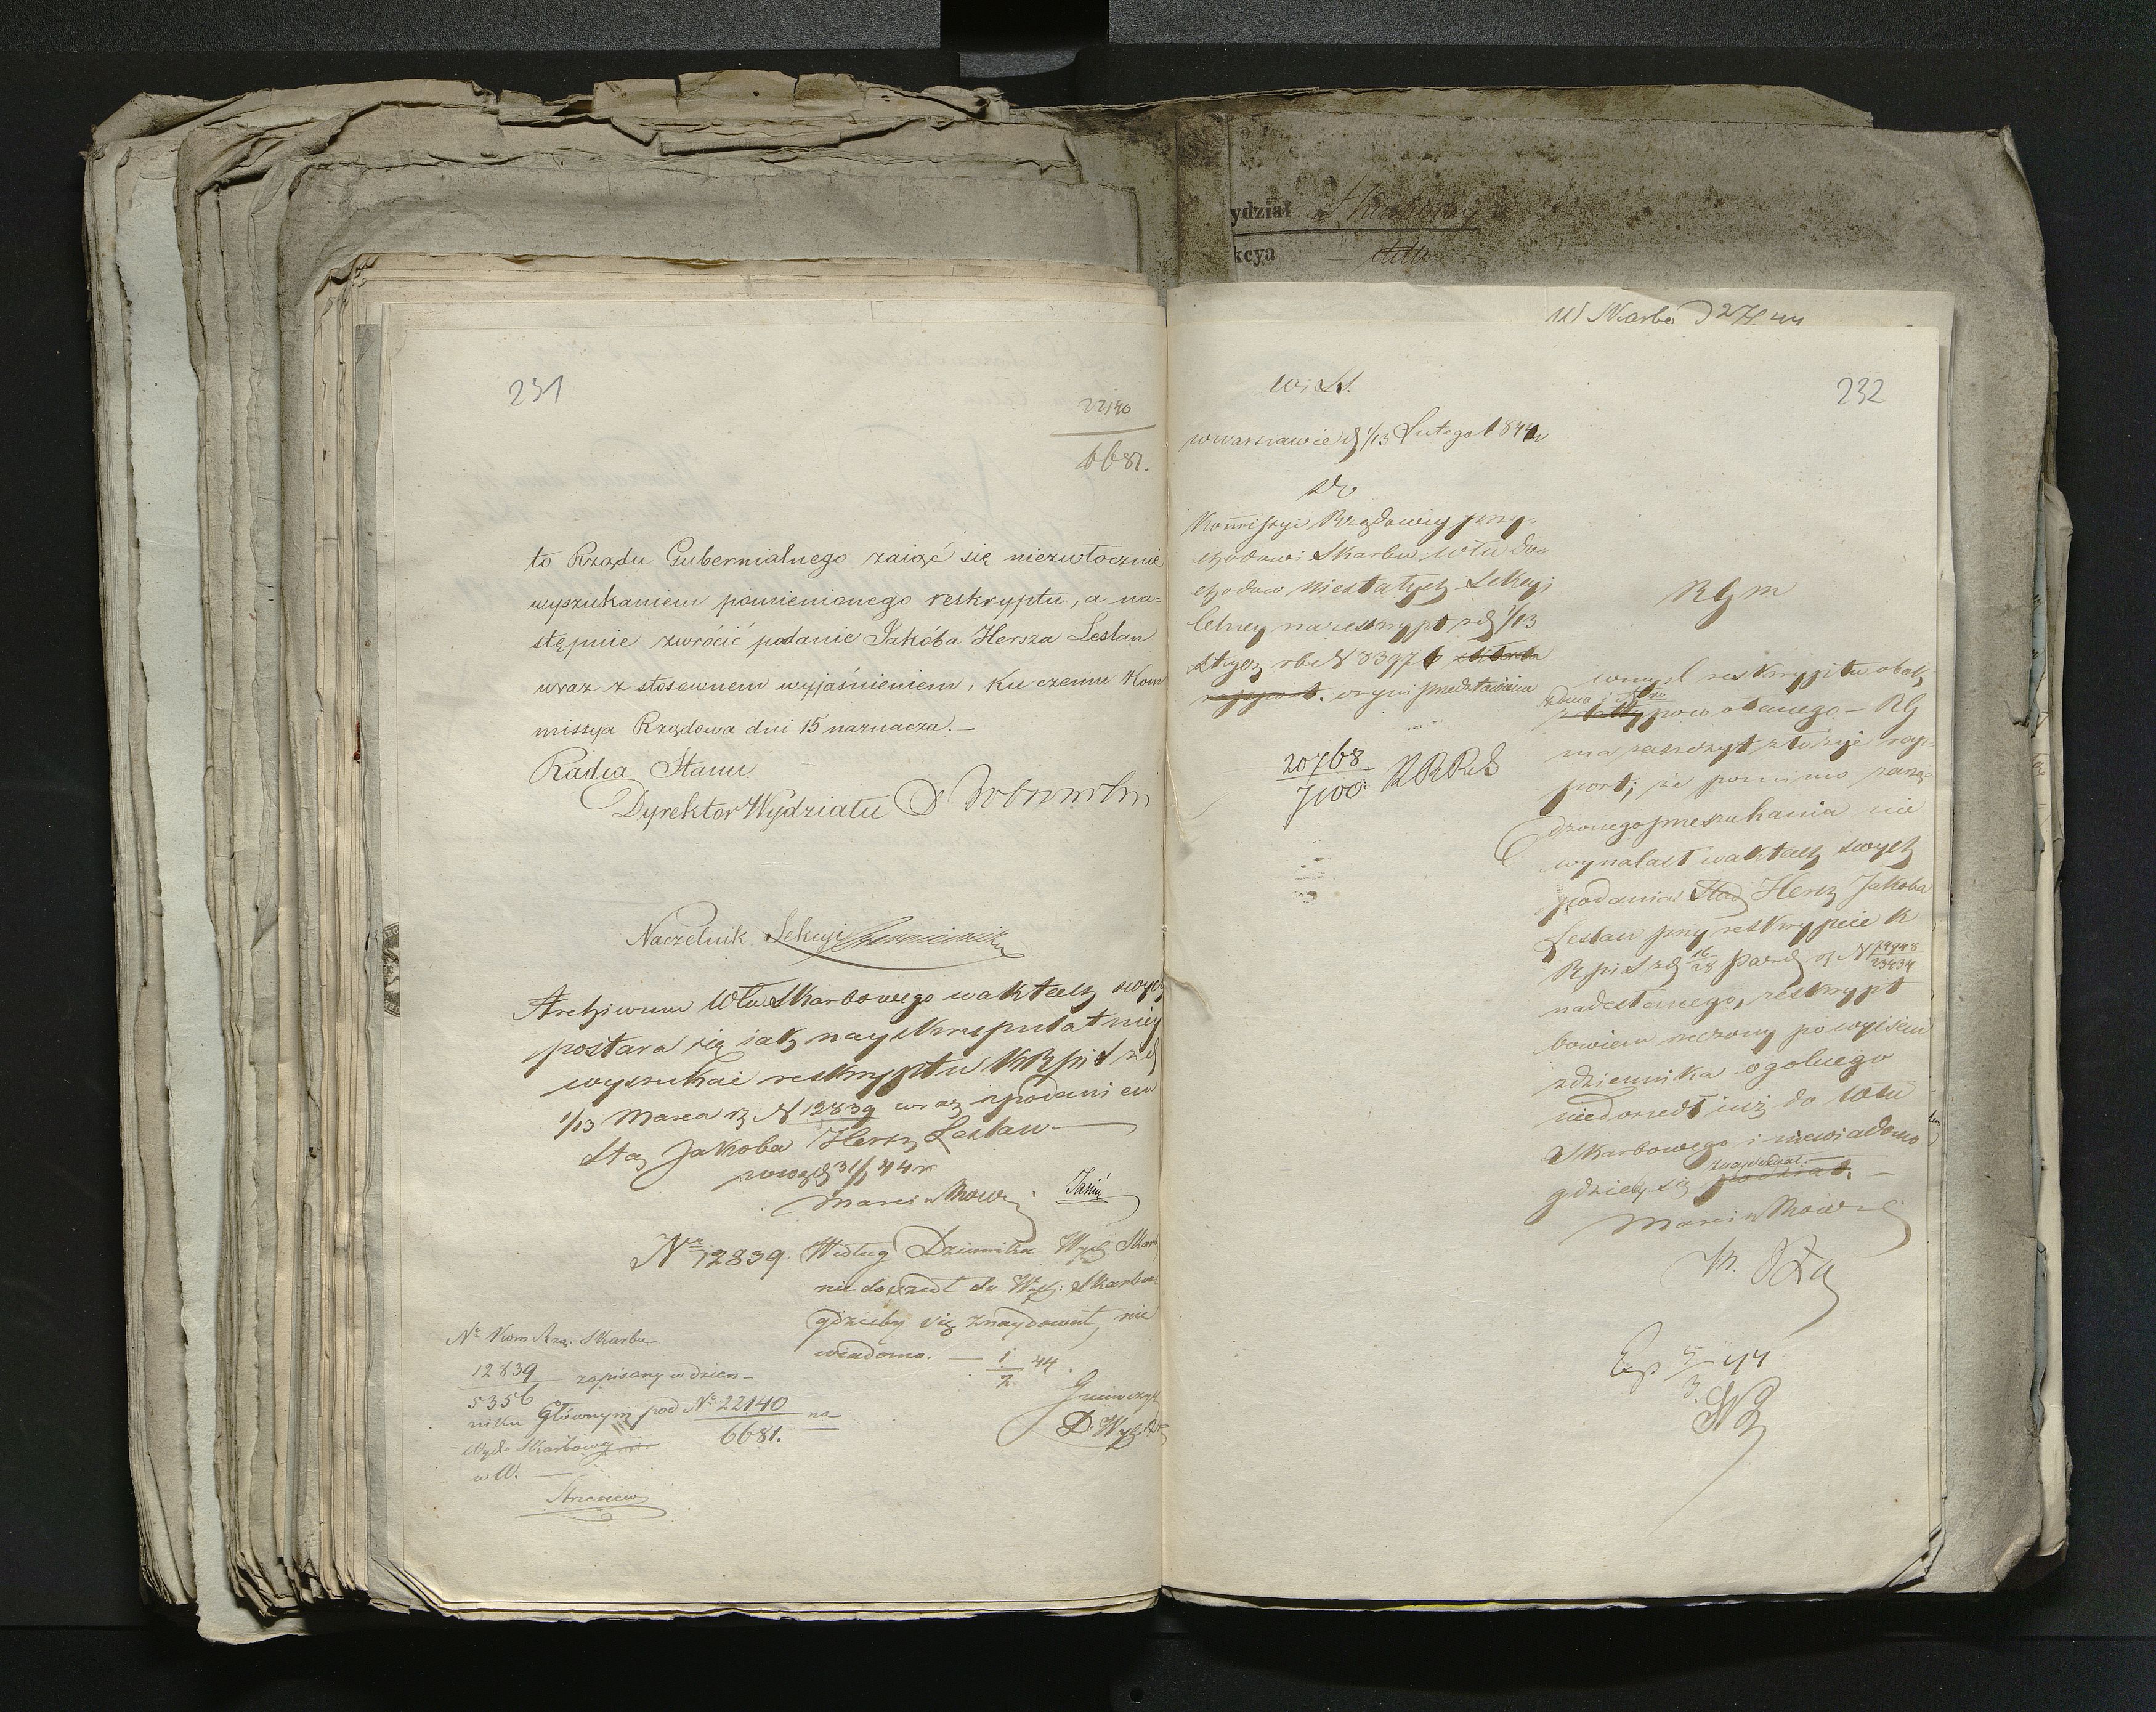 231
22140
6681.
to Rządu Gubernialnego zaiąć się niezwłocznie
wyszukaniem pomienionego reskryptu, a na=
stępnie zwrócić podanie Jakóba Hersza Leslau
wraz z stosownem wyjaśnieniem, ku czemu Kom
missya Rządowa dni 15 naznacza.—
Radca Stanu
Dyrektor Wydziału
Naczelnik Sekcyi
Archiwum Włu Skarbowego w aktach swych
postara się iak nayskrupulatniey
wyszukać reskryptu KRPiS zd
1/13 Marca rz N 12839 wraz z podaniem
Sta Jakoba Hersz Leslau —
31/1 44 r
Marcinkowski
Nr 12839. Według Dziennika Wydz Skar
nie doszedł do Wydz: Skarbow
gdzieby się znaydował, nie
wiadomo. — 1/2 44.
D. Wydz.
Nr Kom Rzą. Skarbu
12839
5356
zapisany w dzien-
niku Głównym pod Nr 22140
6681.
na
Wydz Skarbowy
w A.
ydział Skarbowy
kcya
W Skarbo
232
w Warszawie d 1/13 Lutego 1844 r
Do
Kommissyi Rządowey przy-
chodowi Skarbu Włu do-
chodow niestałych Sekcyi
na reskrypt z d 1/13
Stycz rb N 83976
oryg: przedstawienia
20768
KRPiS
RGM
w myśl reskryptu obok
z dnia i Nru
powołanego — RG
ma zaszczyt złożyć rap-
port, że pomimo zarzą-
dzonego przeszukania nie
wynalazł w aktach swych
podania Hersz Jakoba
Leslau przy reskrypcie K
RPiS z d 16/28 Pazd rz N 79948
23434
nadesłanego, reskrypt
bowiem rzeczony po wyjściu
z dziennika ogolnego
niedoszedł iuż do Włu
Skarbowego i niewiadomo
gdzieby się znaydował.
Marcinkowski
Exp 5/3 44